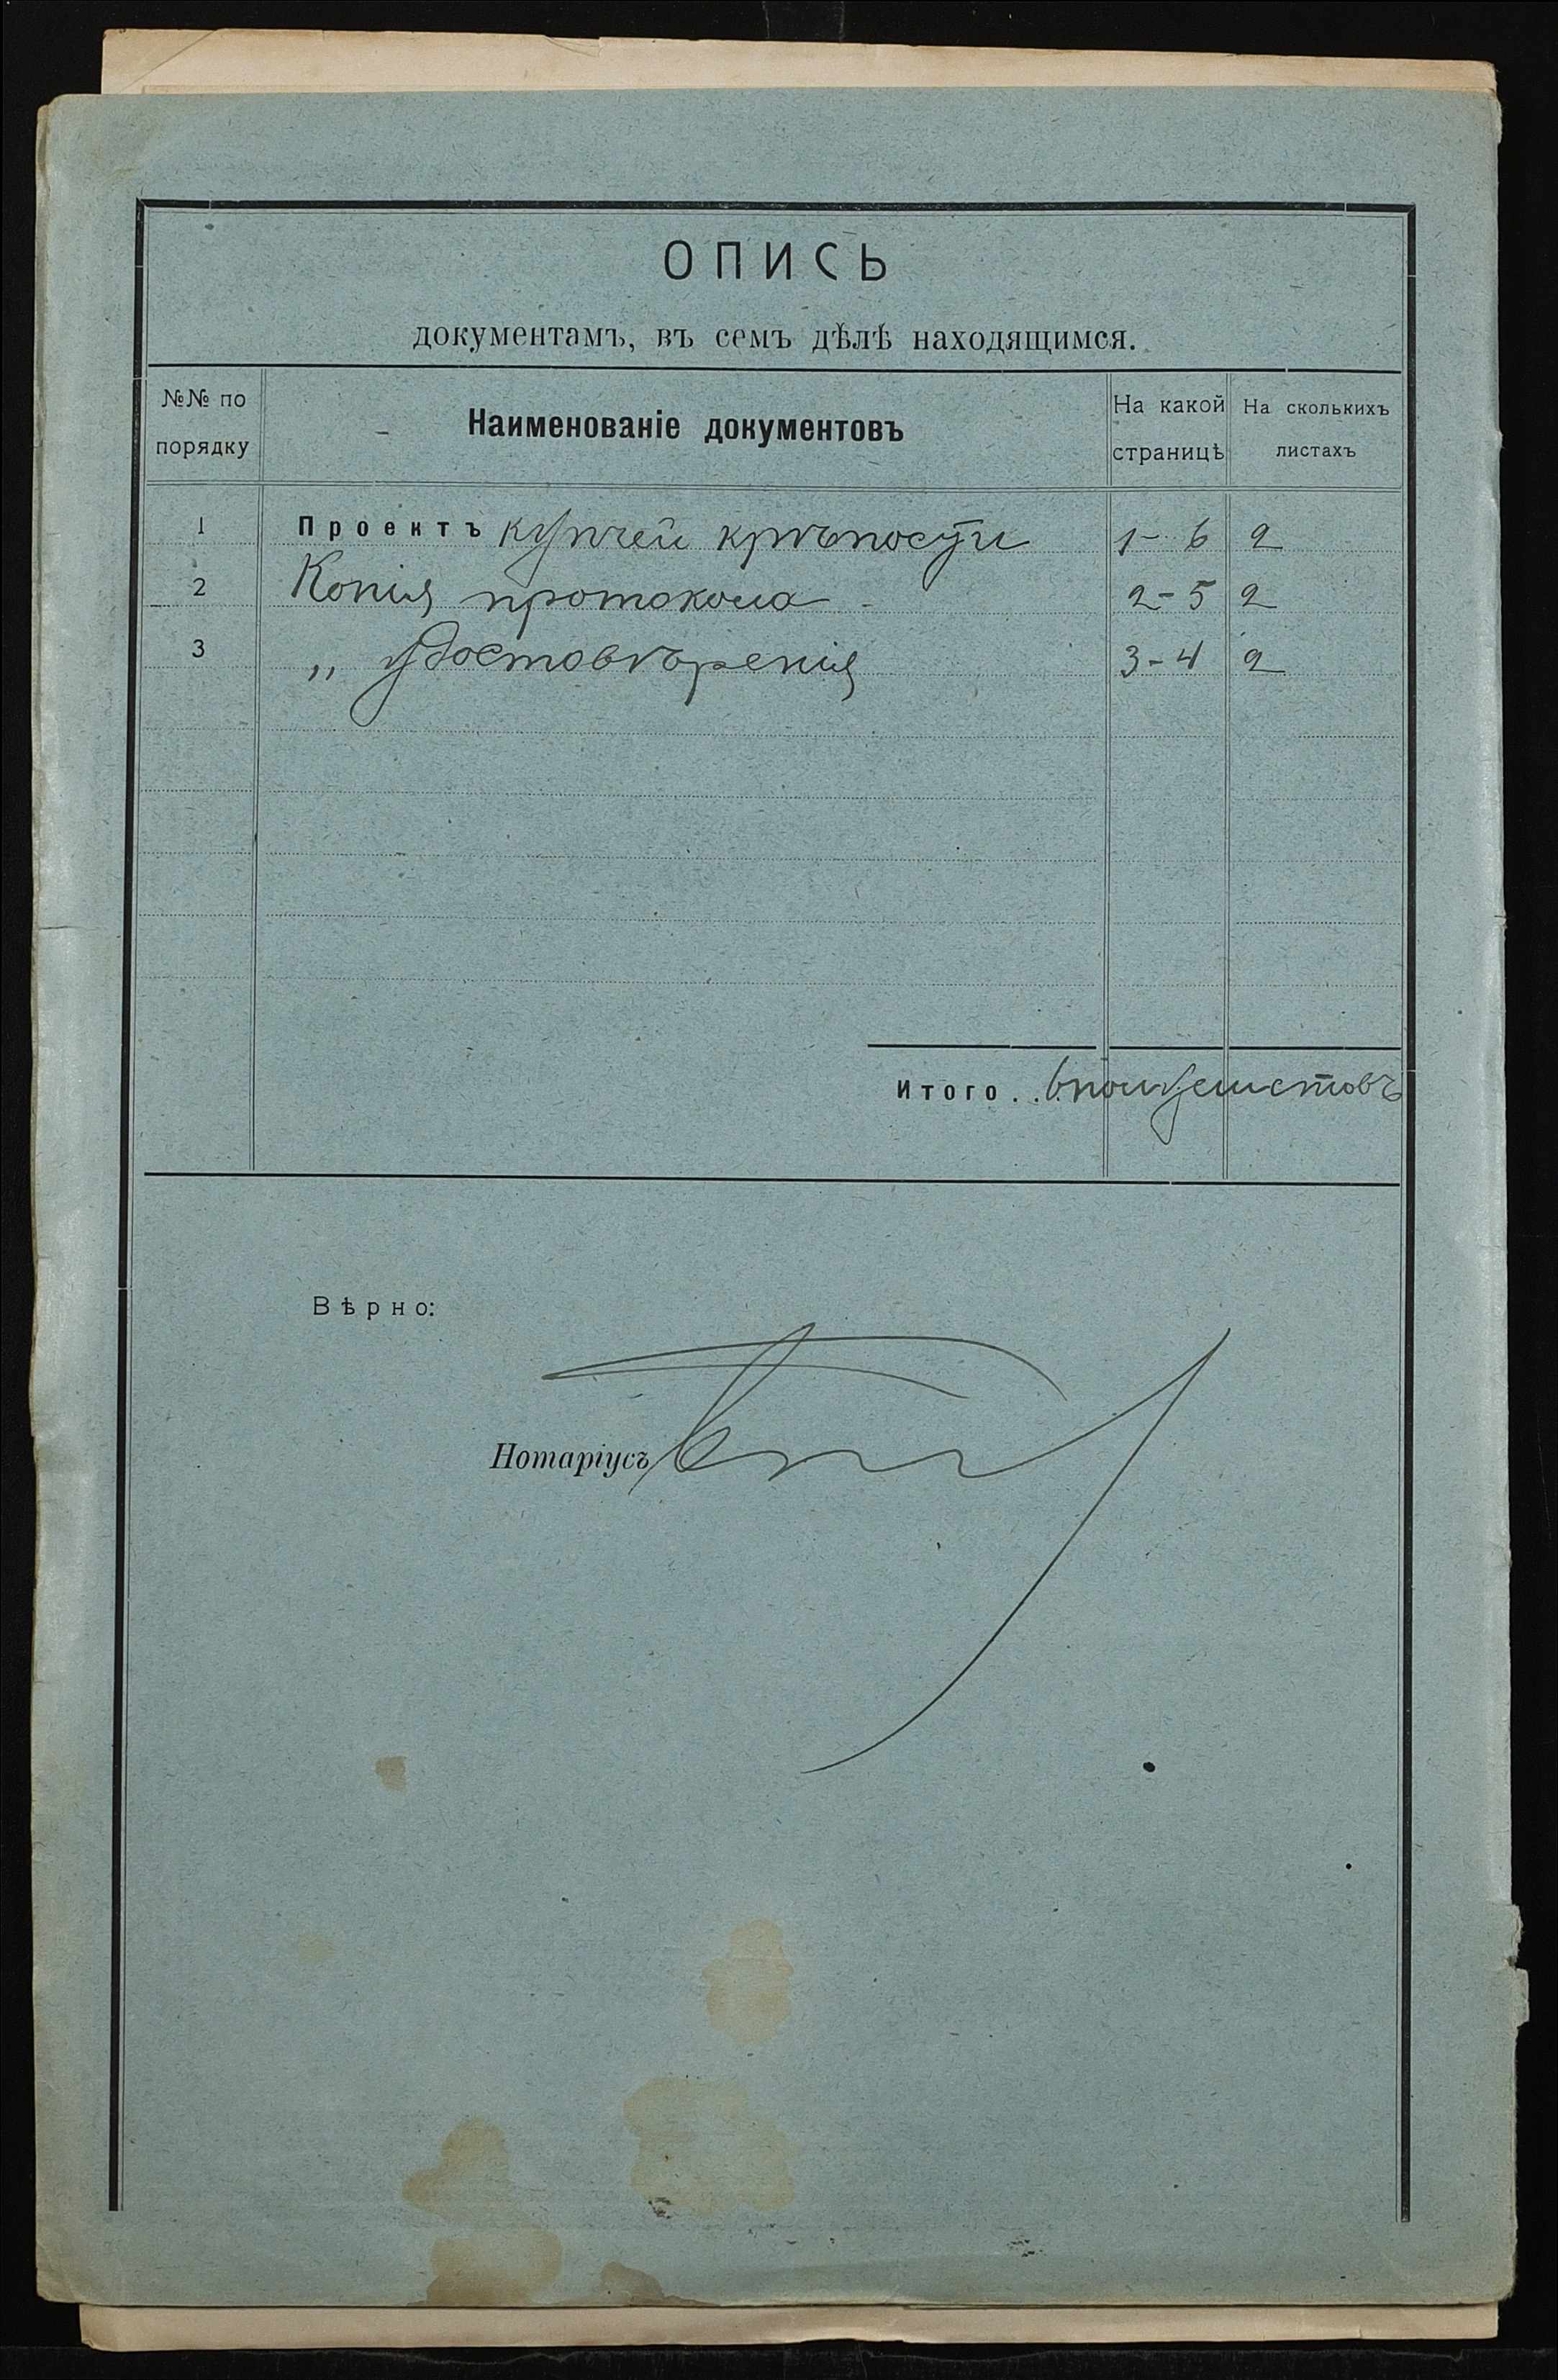 ОПИСЬ
документамъ, въ семъ дѣлѣ находящимся.
№№ по порядку
Наименованіе документовъ
На какой страницѣ
На сколькихъ листахъ
1 Проектъ купчей крѣпости 1-6 2
2 Копія протокола 2-5 2
3 „ удостовѣренія 3-4 2
Итого . . 6 полулистовъ
Вѣрно:
Нотаріусъ